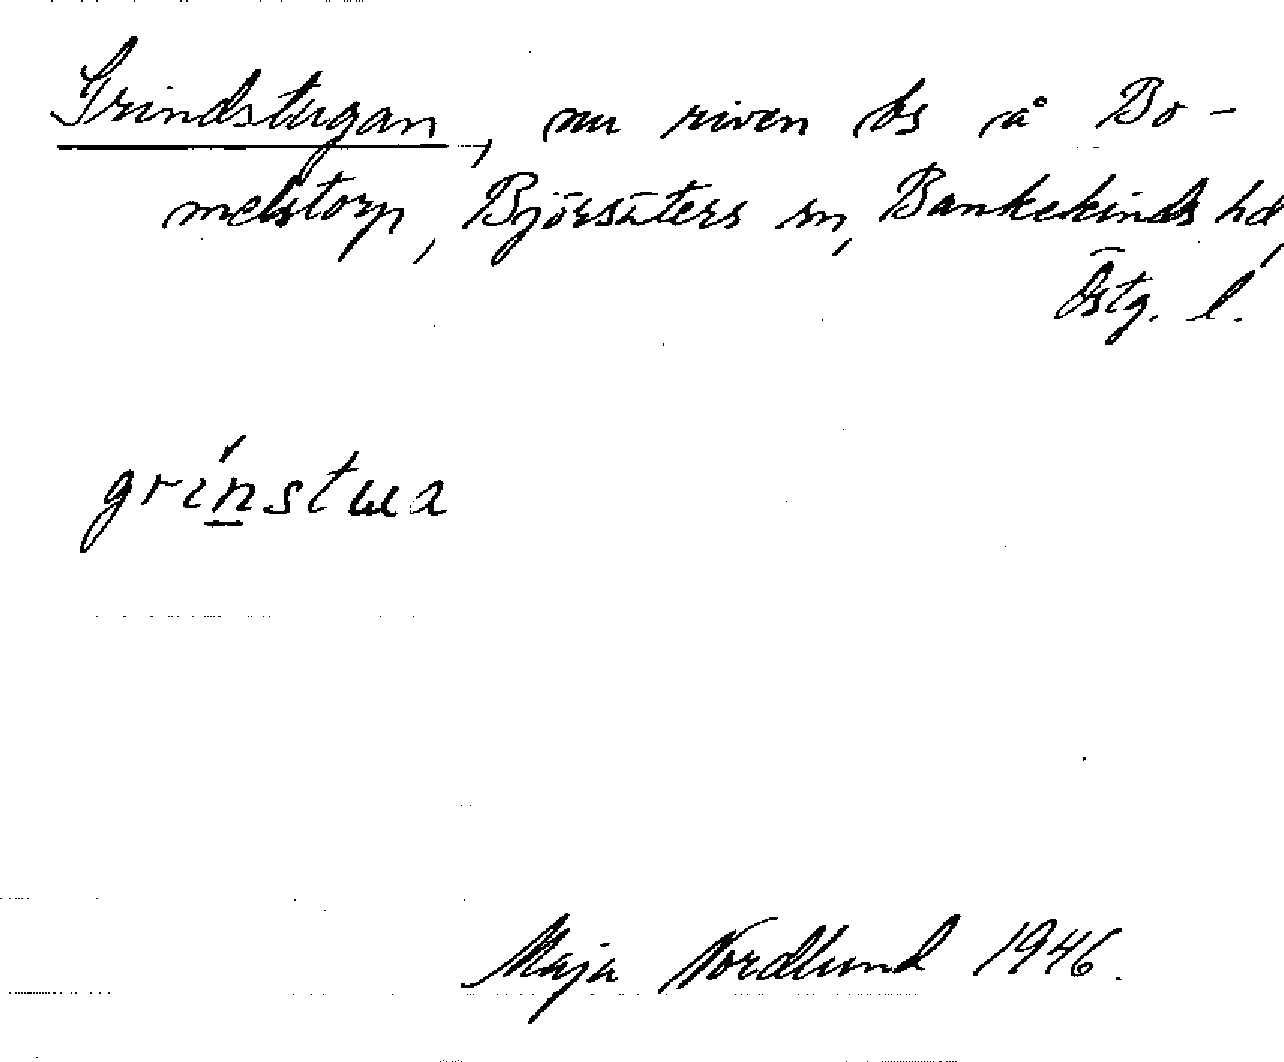 Grindstugan, nu riven ds å Bo-
melstorp, Björsäters sn, Bankekinds hd,
Östg. l.
grinstua
Maja Nordlund 1946.